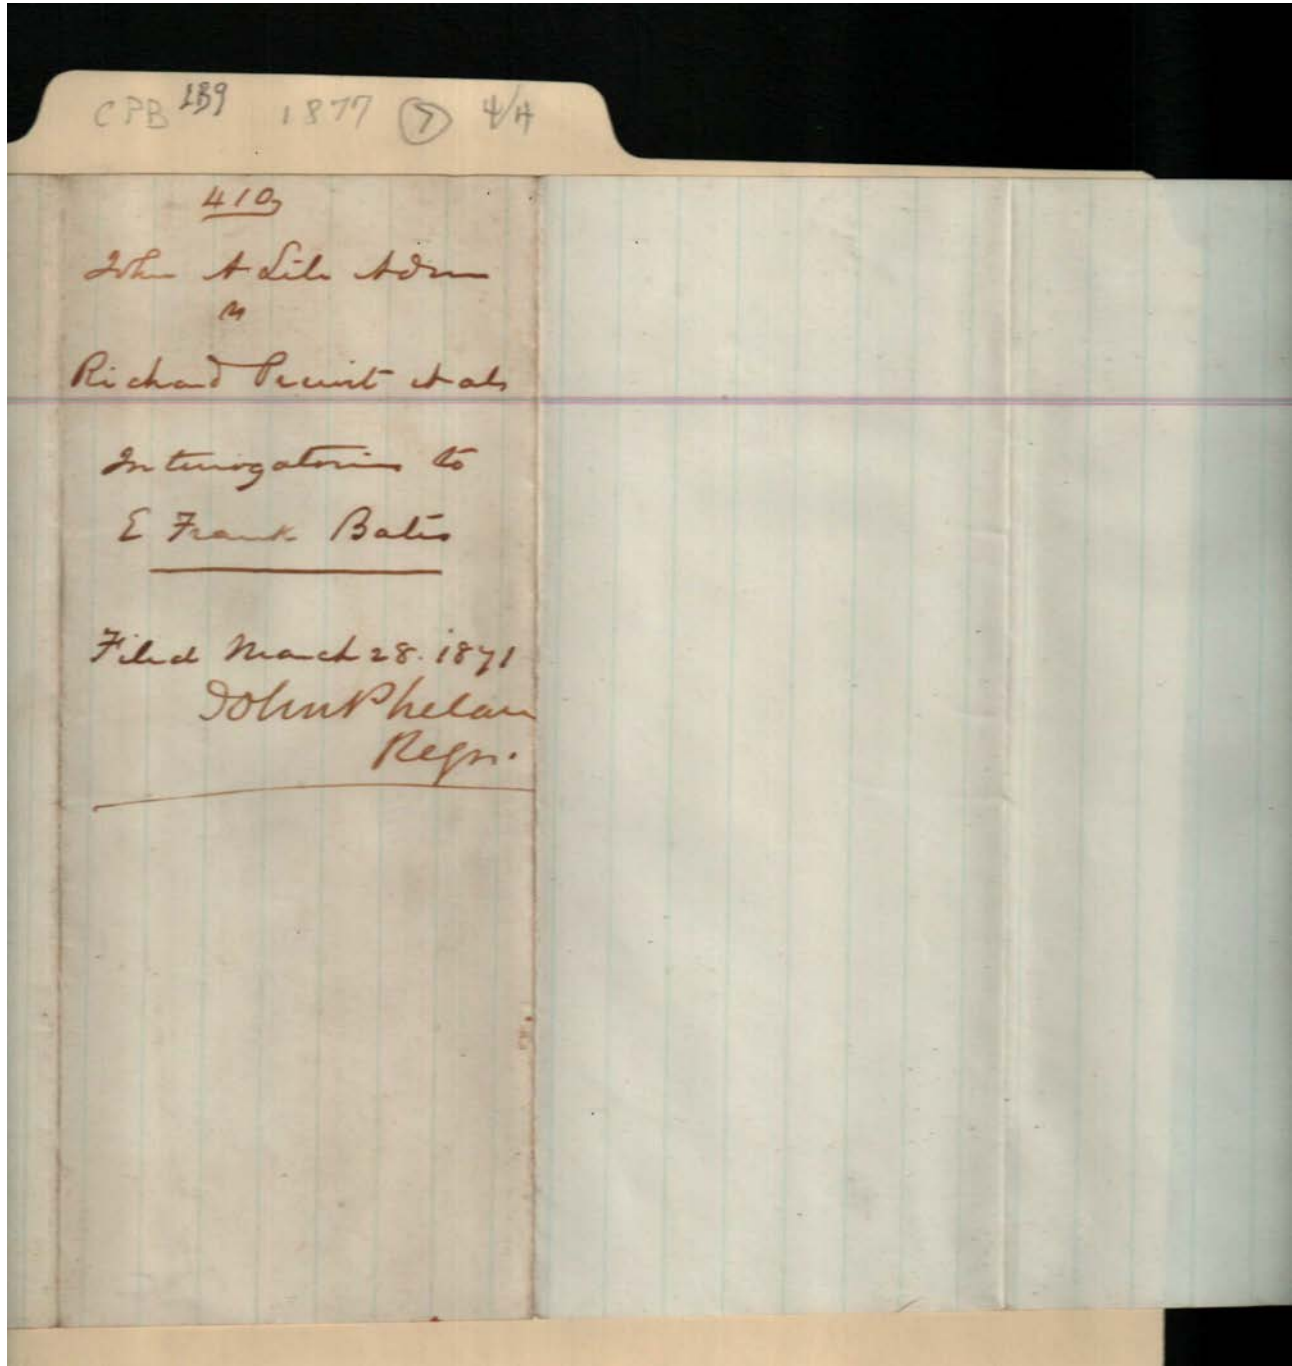 CPB 189 1877 7 4/4
410
John A Lile Admr
vs
Richard Pruit et als
Interrogatories to
E Frank Bates
Filed March 28. 1871
John Phelan
Regr.